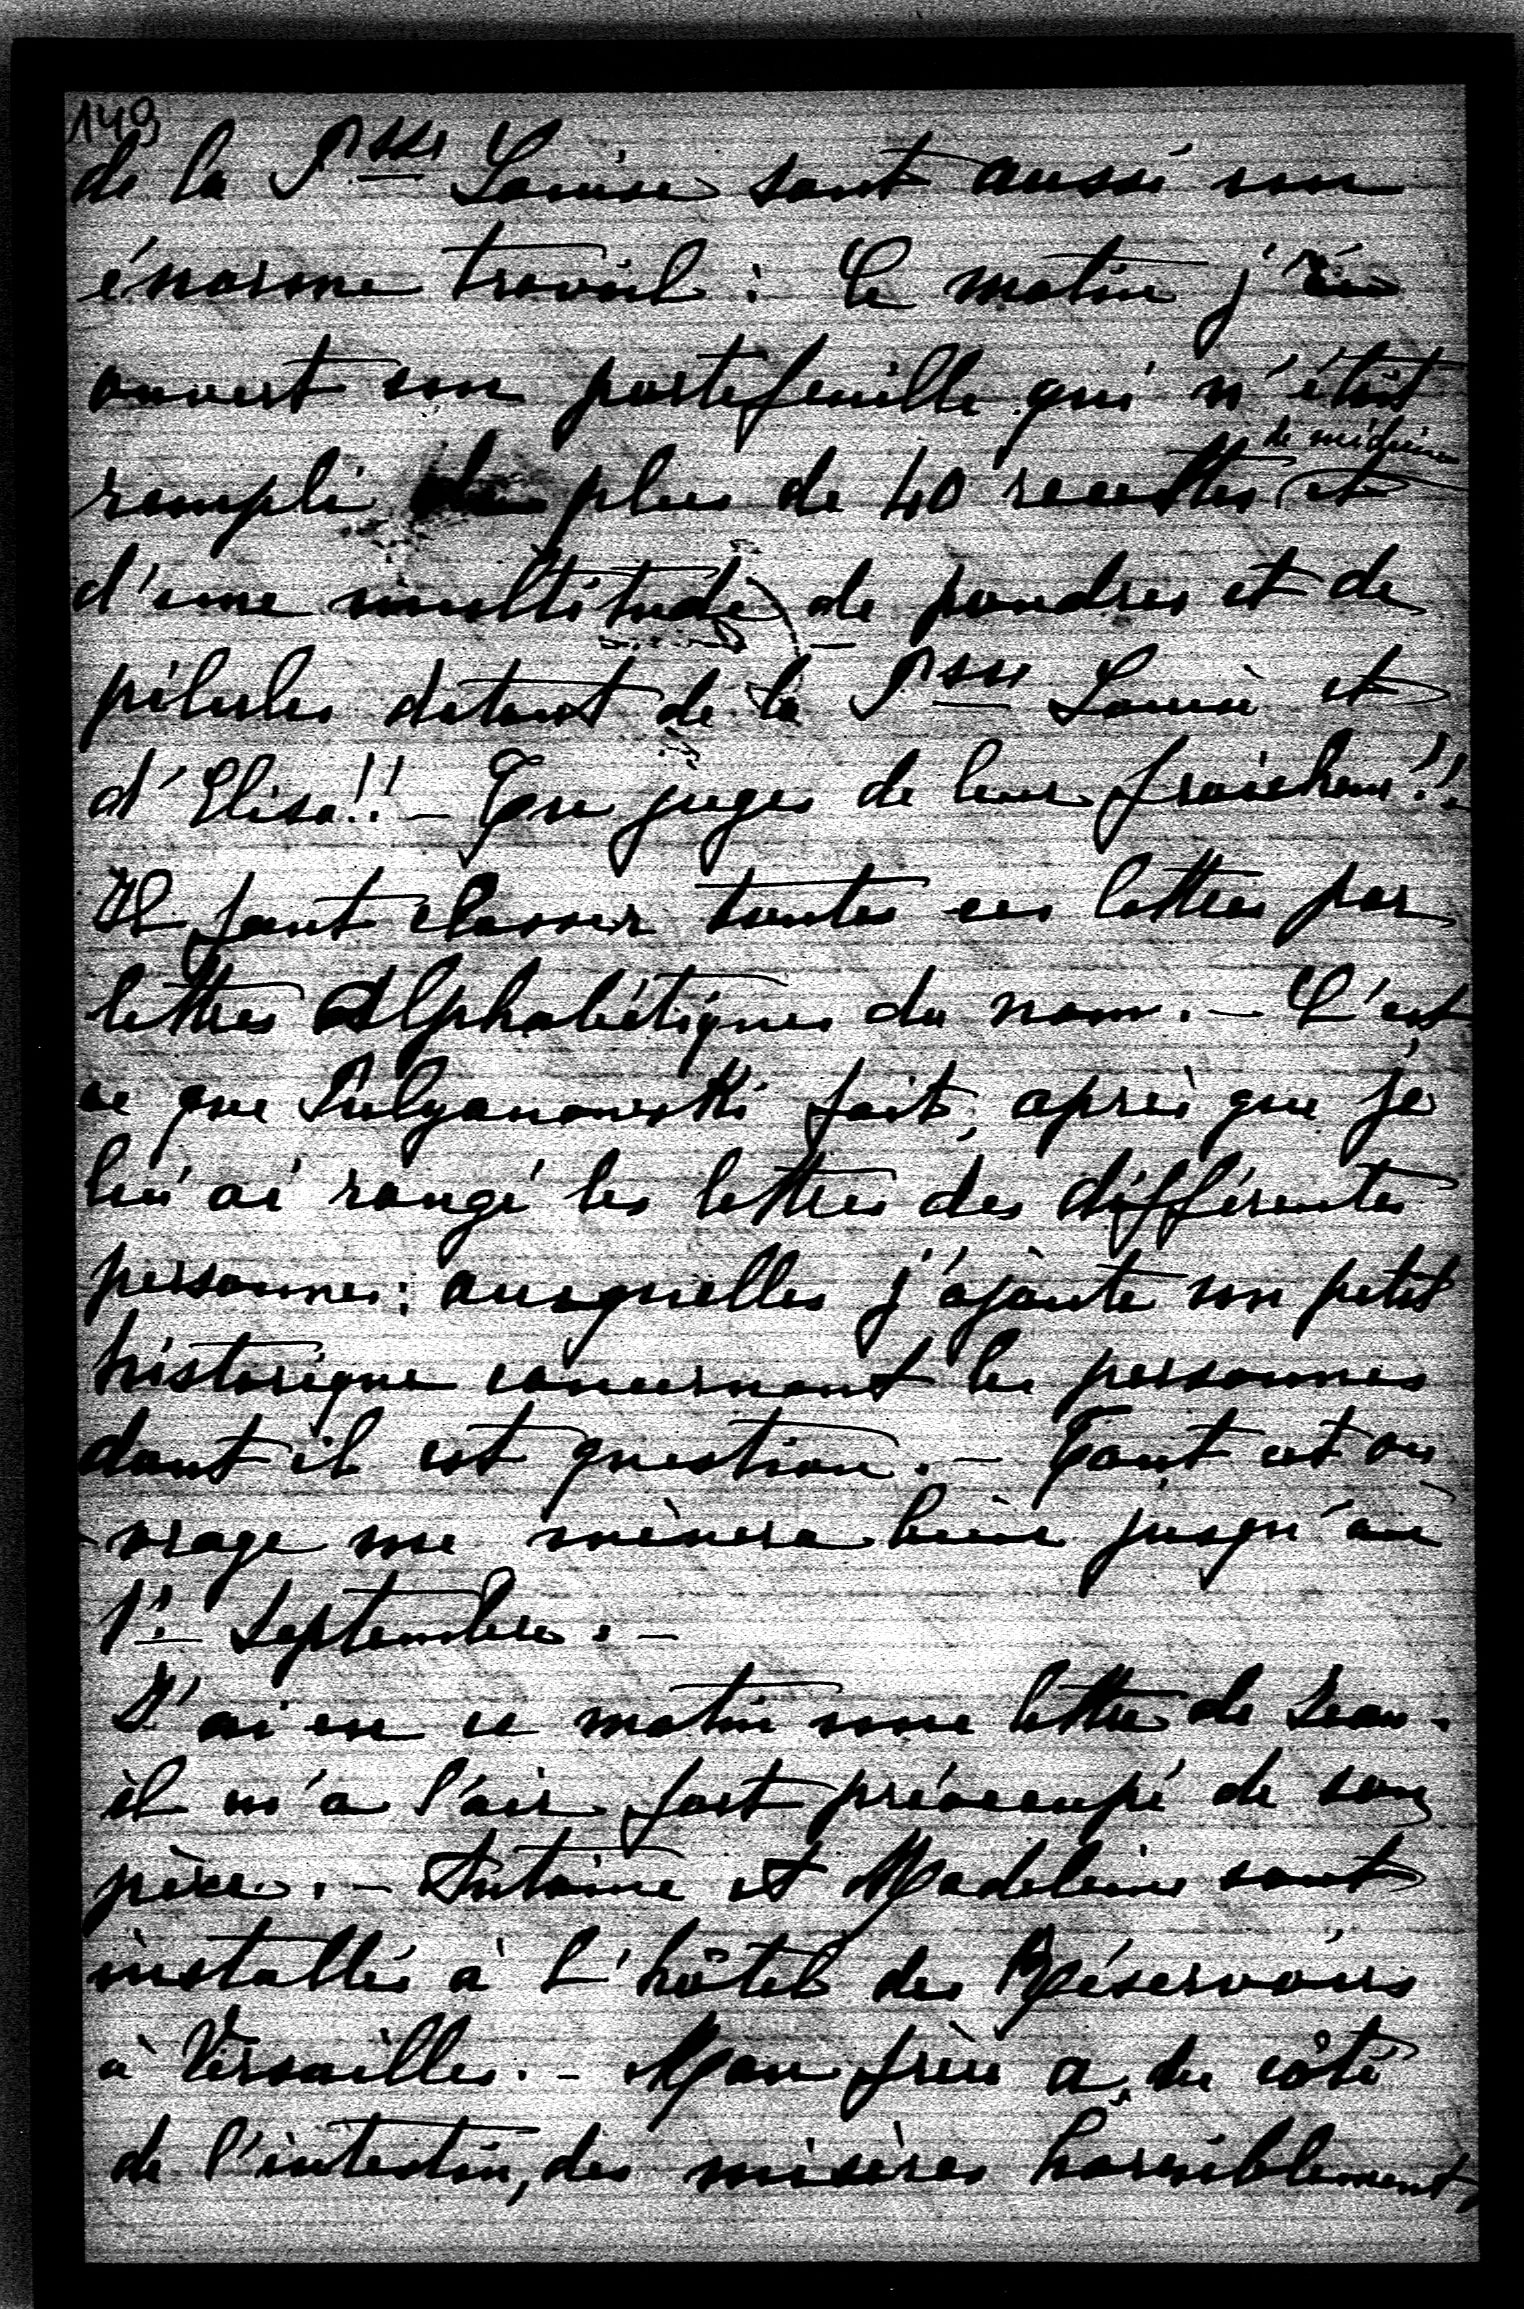 149
de la Psse Louise sont aussi un
énorme travail : Ce matin j'ai
ouvert un portefeuille qui n'était
de médecine
rempli plus de 40 recettes et
d'une multitude de poudres et de
pilules datant de la Psse Louise et
d'Elisa!! – Tu juges de leur fraicheur!!
Il faut classer toutes ces lettres par
lettres Alphabétiques du nom. – C'est
ce que Pulyanowski fait, après que je
lui ai rangé les lettres des différentes
personnes: auxquelles j'ajoute un petit
historique concernant les personnes
dont il est question. – Tout cet ou
-vrage me mènera bien jusqu'au
1r Septembre. –
J'ai eu ce matin une lettre de Jean.
il m'a l'air fort préoccupé de son
père. – Antoine et Madeleine sont
installés à L'hôtel des Réservoirs
à Versailles. – Mon frère a, du côté
de l'intestin, des misères horriblement